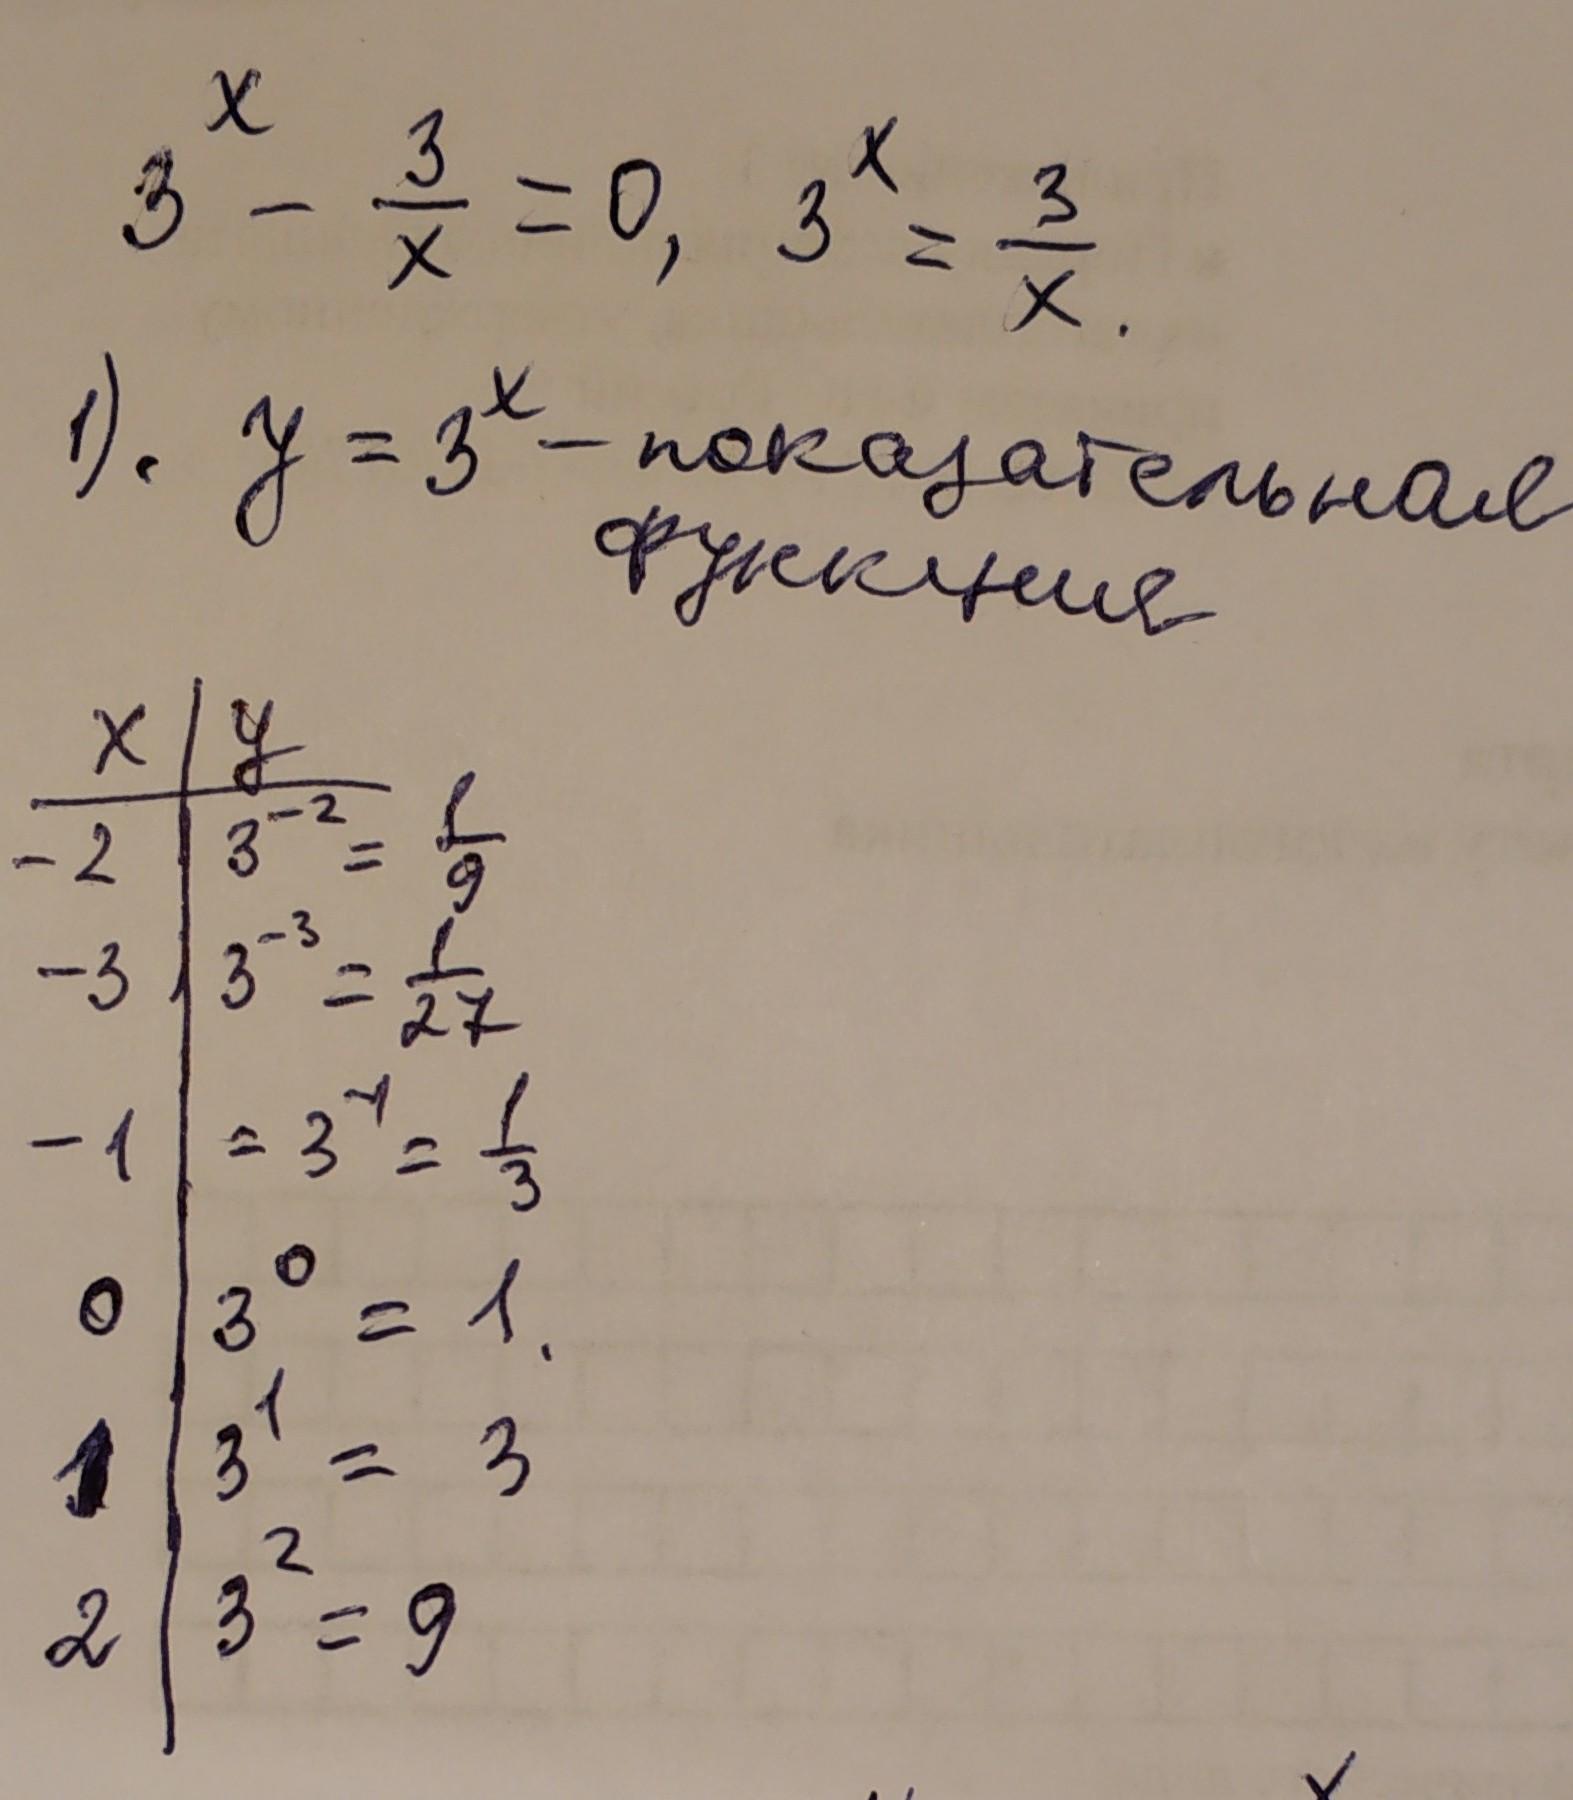 3^x - 3/x = 0, 3^x = 3/x.
1). y = 3^x - показательная
функция
x | y
-2 | 3^-2 = 1/9
-3 | 3^-3 = 1/27
-1 | = 3^-1 = 1/3
0 | 3^0 = 1.
1 | 3^1 = 3
2 | 3^2 = 9